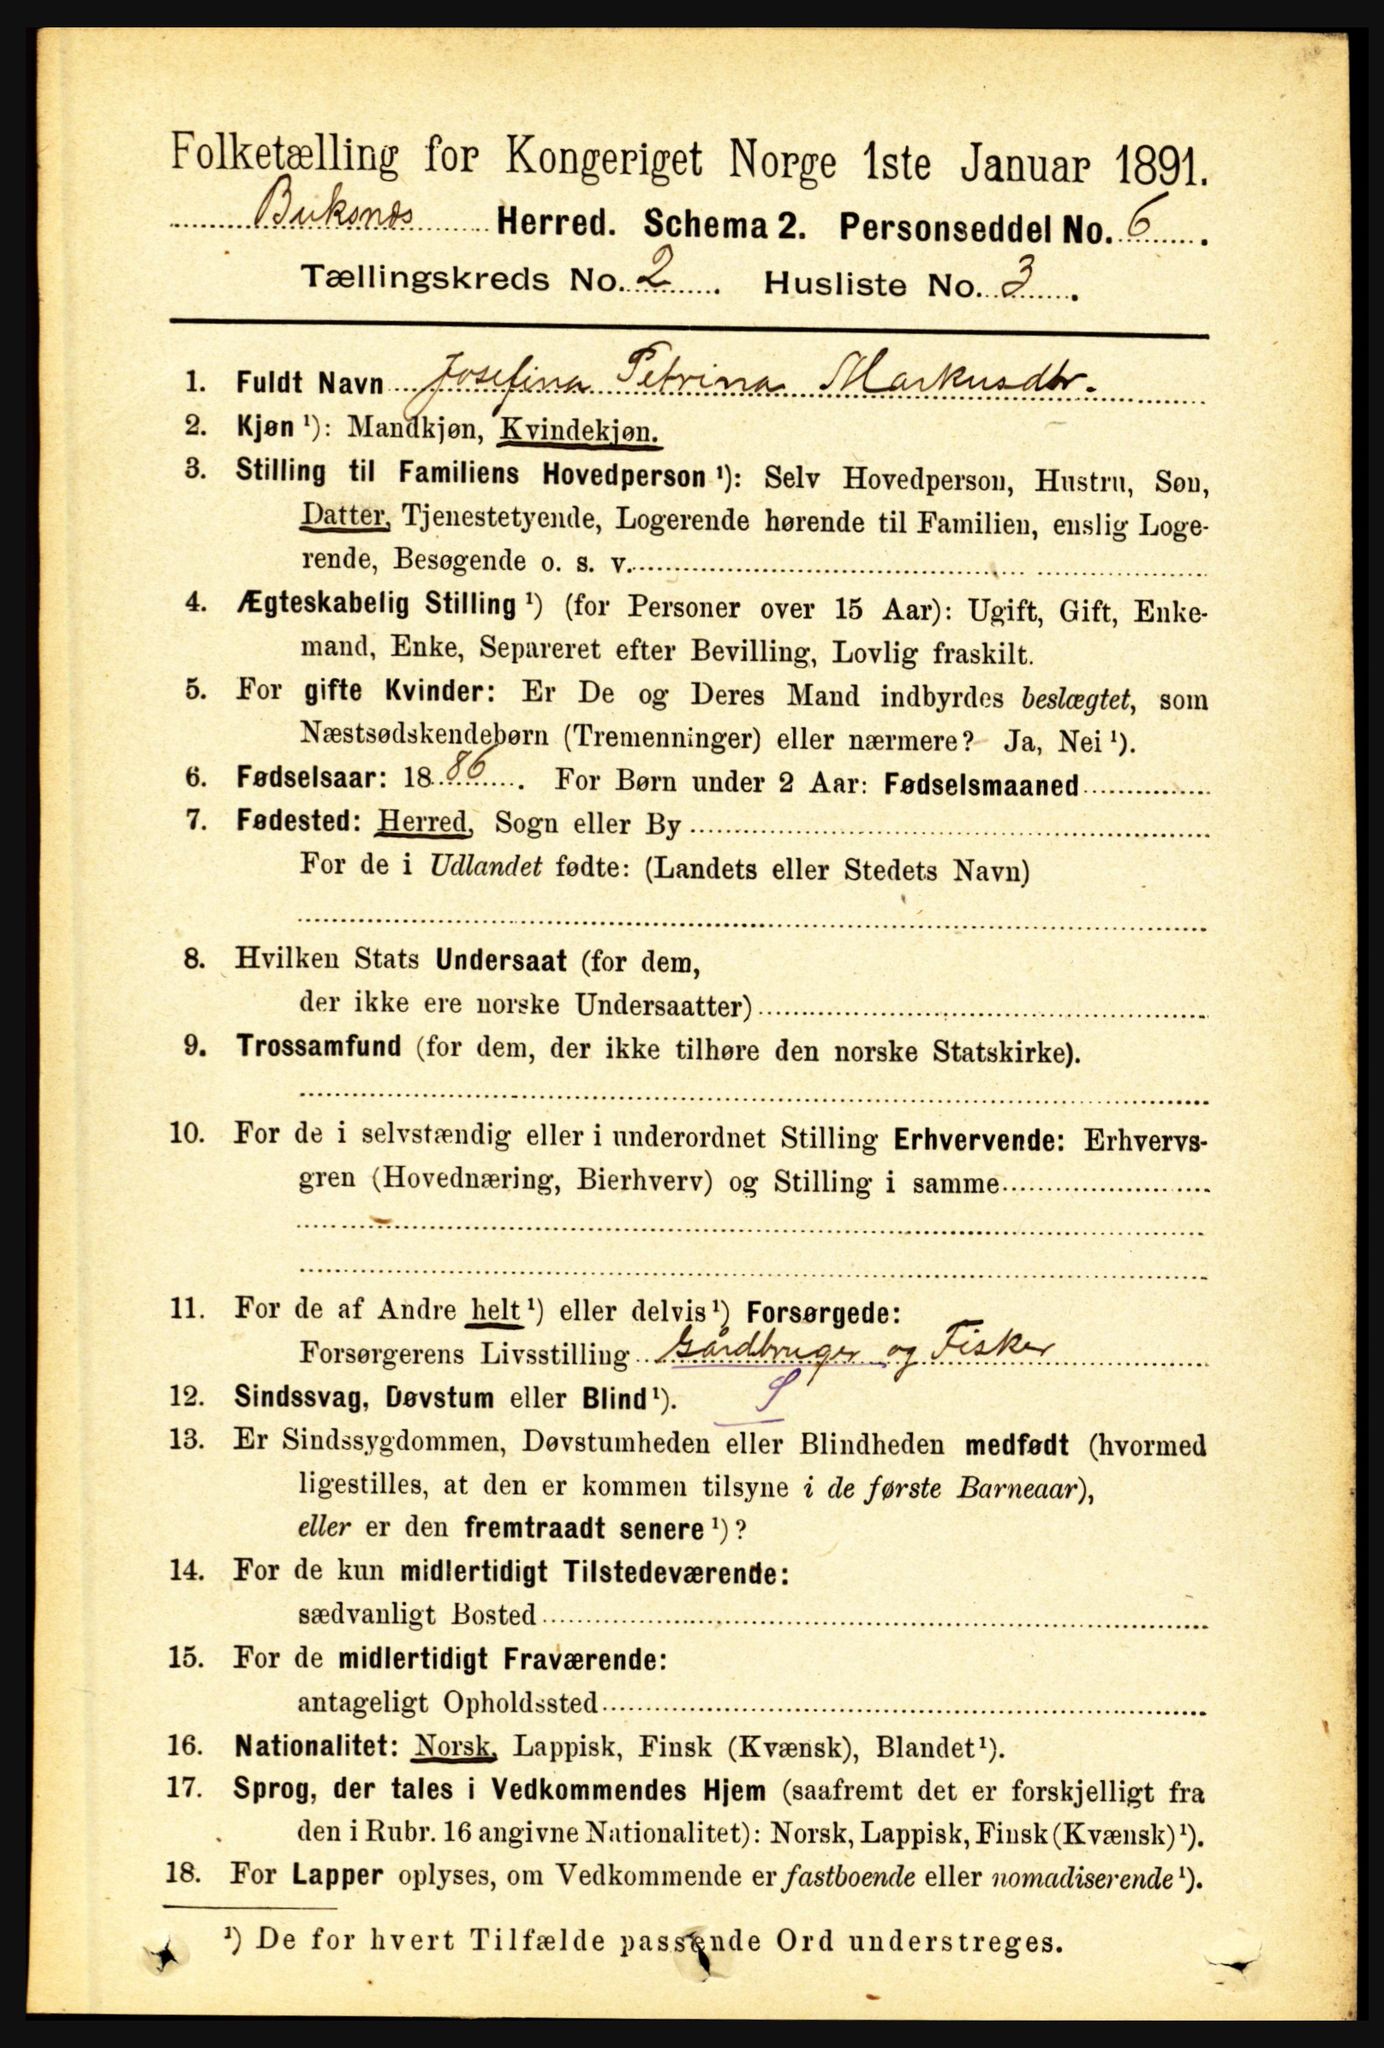 Folketælling for Kongeriget Norge 1ste Januar 1891.
Buksnes Herred. Schema 2. Personseddel No. 6.
Tællingskreds No. 2. Husliste No. 3.
1. Fuldt Navn Josefina Petrina Markusdtr.
2. Kjøn ¹): Mandkjøn, Kvindekjøn.
3. Stilling til Familiens Hovedperson ¹): Selv Hovedperson, Hustru, Søn,
Datter, Tjenestetyende, Logerende hørende til Familien, enslig Loge-
rende, Besøgende o. s. v.
4. Ægteskabelig Stilling ¹) (for Personer over 15 Aar): Ugift, Gift, Enke-
mand, Enke, Separeret efter Bevilling, Lovlig fraskilt.
5. For gifte Kvinder: Er De og Deres Mand indbyrdes beslægtet, som
Næstsødskendebørn (Tremenninger) eller nærmere? Ja, Nei ¹).
6. Fødselsaar: 1886. For Børn under 2 Aar: Fødselsmaaned
7. Fødested: Herred, Sogn eller By
For de i Udlandet fødte: (Landets eller Stedets Navn)
8. Hvilken Stats Undersaat (for dem,
der ikke ere norske Undersaatter)
9. Trossamfund (for dem, der ikke tilhøre den norske Statskirke).
10. For de i selvstændig eller i underordnet Stilling Erhvervende: Erhvervs-
gren (Hovednæring, Bierhverv) og Stilling i samme
11. For de af Andre helt ¹) eller delvis ¹) Forsørgede:
Forsørgerens Livsstilling Gårdbruger og Fisker
12. Sindssvag, Døvstum eller Blind ¹). S
13. Er Sindssygdommen, Døvstumheden eller Blindheden medfødt (hvormed
ligestilles, at den er kommen tilsyne i de første Barneaar),
eller er den fremtraadt senere ¹)?
14. For de kun midlertidigt Tilstedeværende:
sædvanligt Bosted
15. For de midlertidigt Fraværende:
antageligt Opholdssted
16. Nationalitet: Norsk, Lappisk, Finsk (Kvænsk), Blandet ¹).
17. Sprog, der tales i Vedkommendes Hjem (saafremt det er forskjelligt fra
den i Rubr. 16 angivne Nationalitet): Norsk, Lappisk, Finsk (Kvænsk) ¹).
18. For Lapper oplyses, om Vedkommende er fastboende eller nomadiserende ¹).
¹) De for hvert Tilfælde passende Ord understreges.